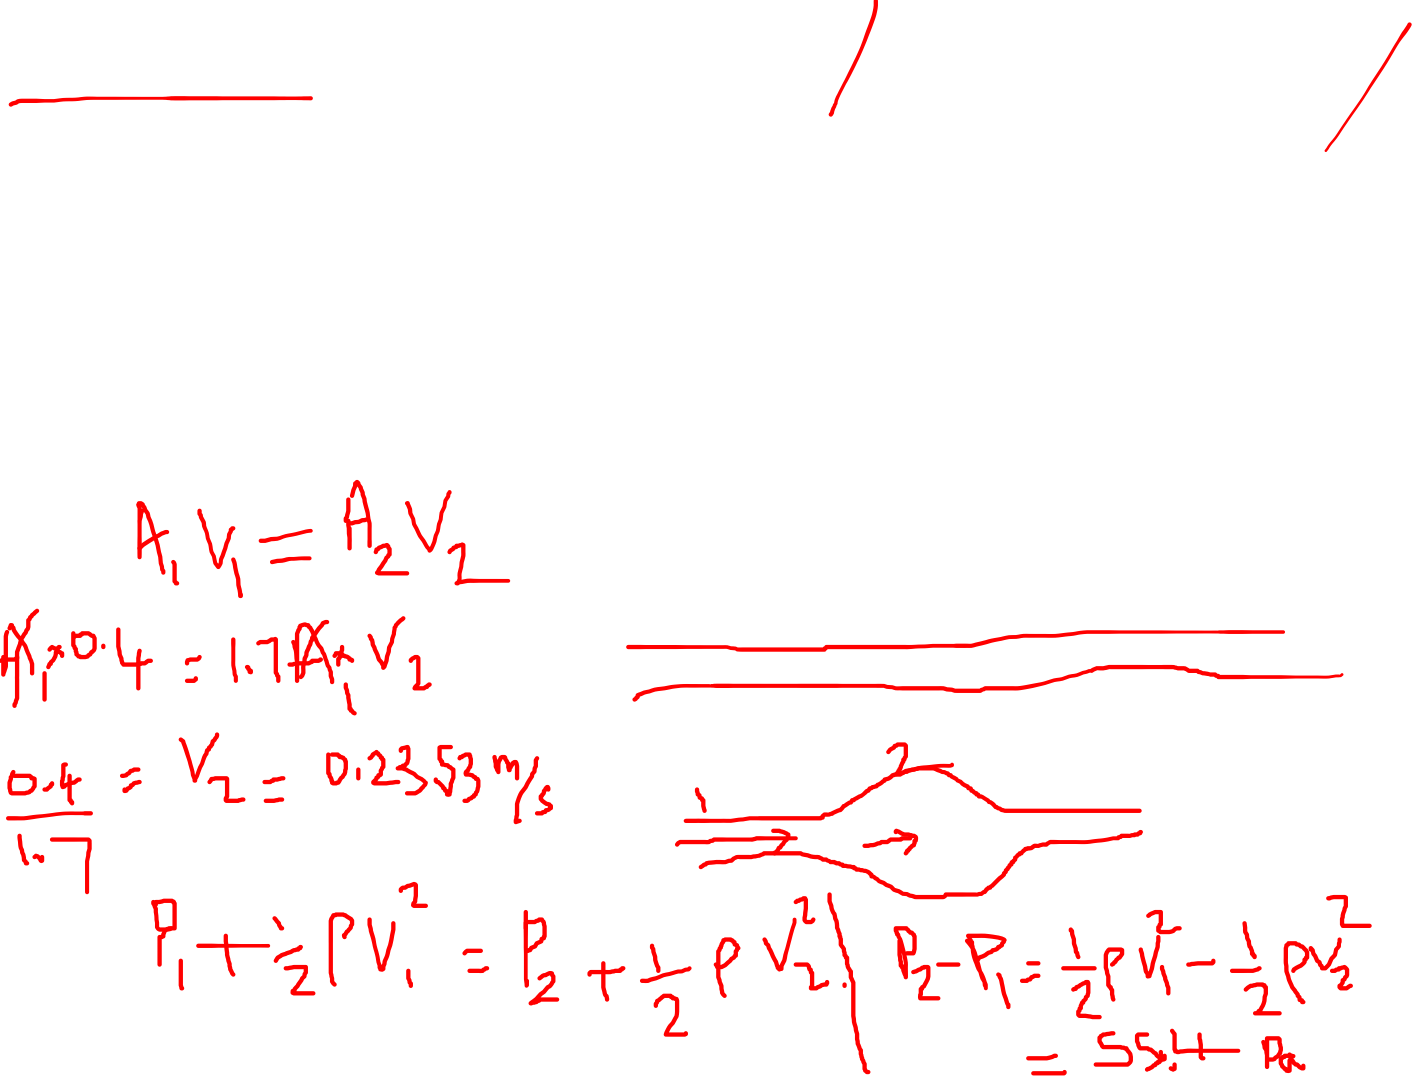 A₁V₁ = A₂V₂
A₁×0.4 = 1.7A₁×V₂
0.4/1.7 = V₂ = 0.2353 m/s
1 2
P₁ + ½ρV₁² = P₂ + ½ρV₂². P₂-P₁ = ½ρV₁² - ½ρV₂²
= 55.4 Pa